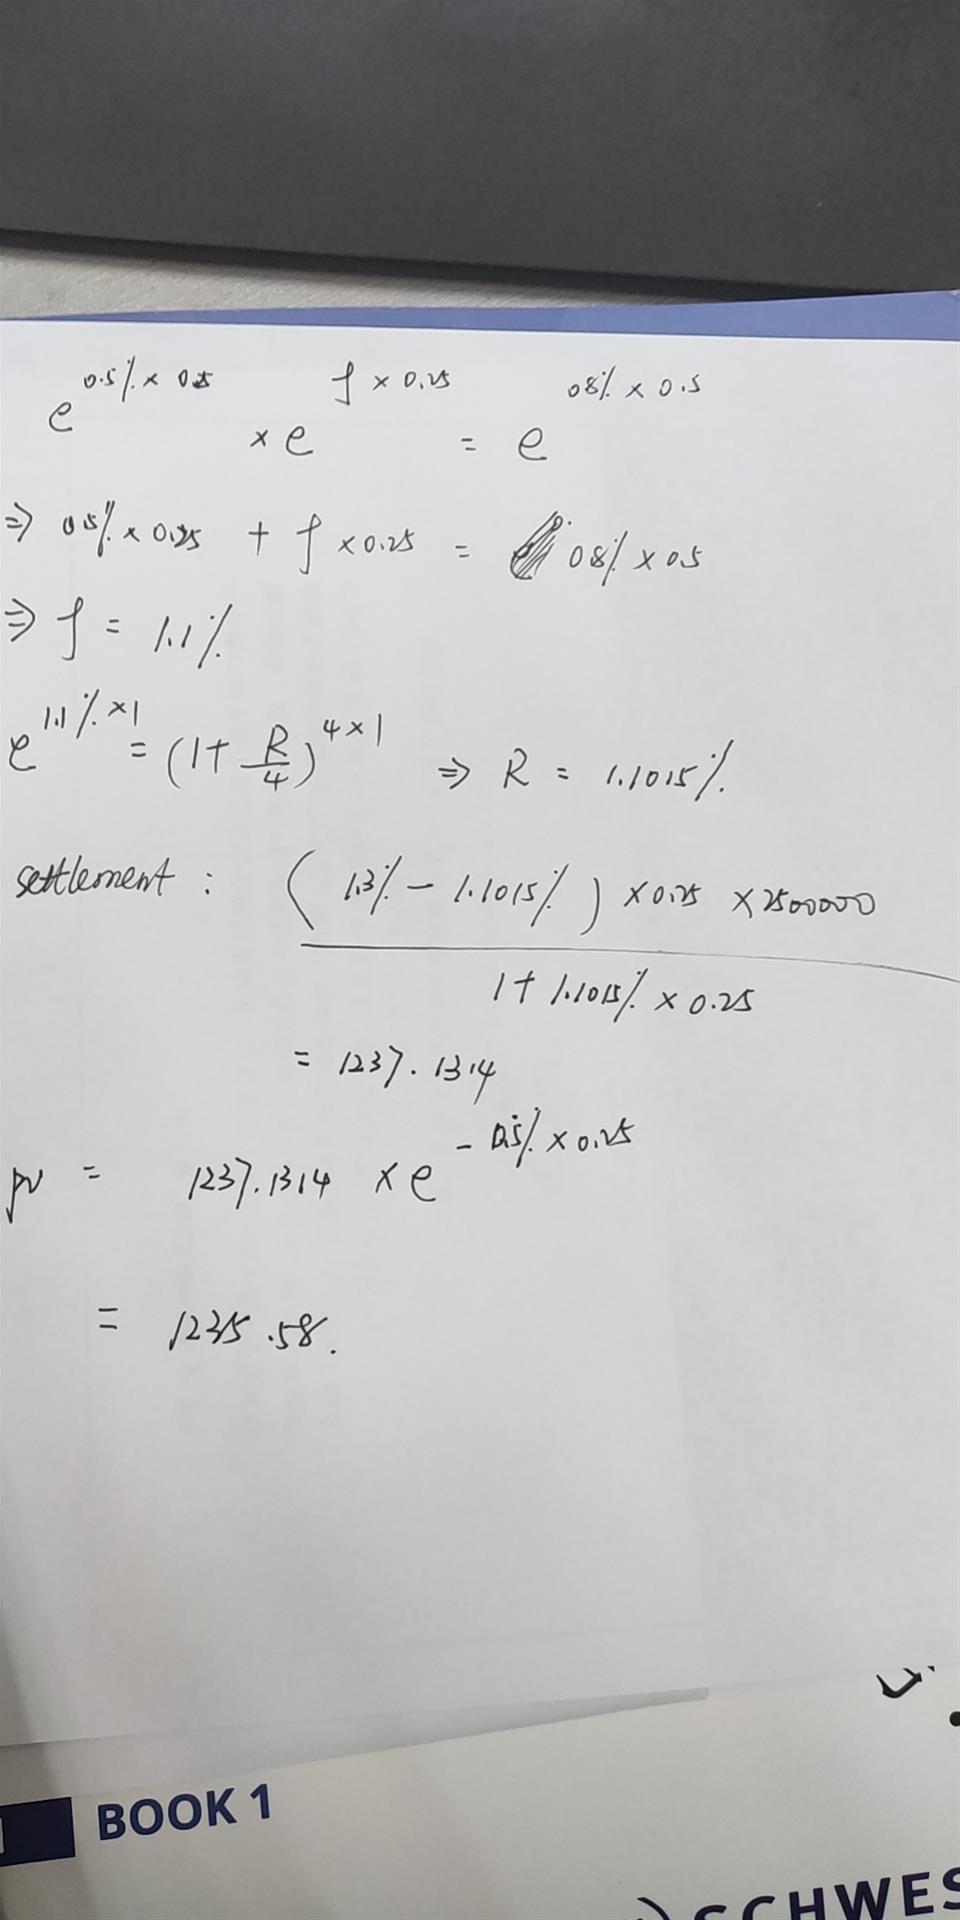 e^{0.5% × 0.25} × e^{f × 0.25} = e^{0.8% × 0.5}
⇒ 0.5% × 0.25 + f × 0.25 = 0.8% × 0.5
⇒ f = 1.1%
e^{1.1% × 1} = (1 + R/4)^{4×1} ⇒ R = 1.1015%
settlement : (1.3% - 1.1015%) × 0.25 × 2500000
1 + 1.1015% × 0.25
= 1237.1314
pv = 1237.1314 × e^{-0.5% × 0.25}
= 1235.58.
BOOK 1
SCHWES